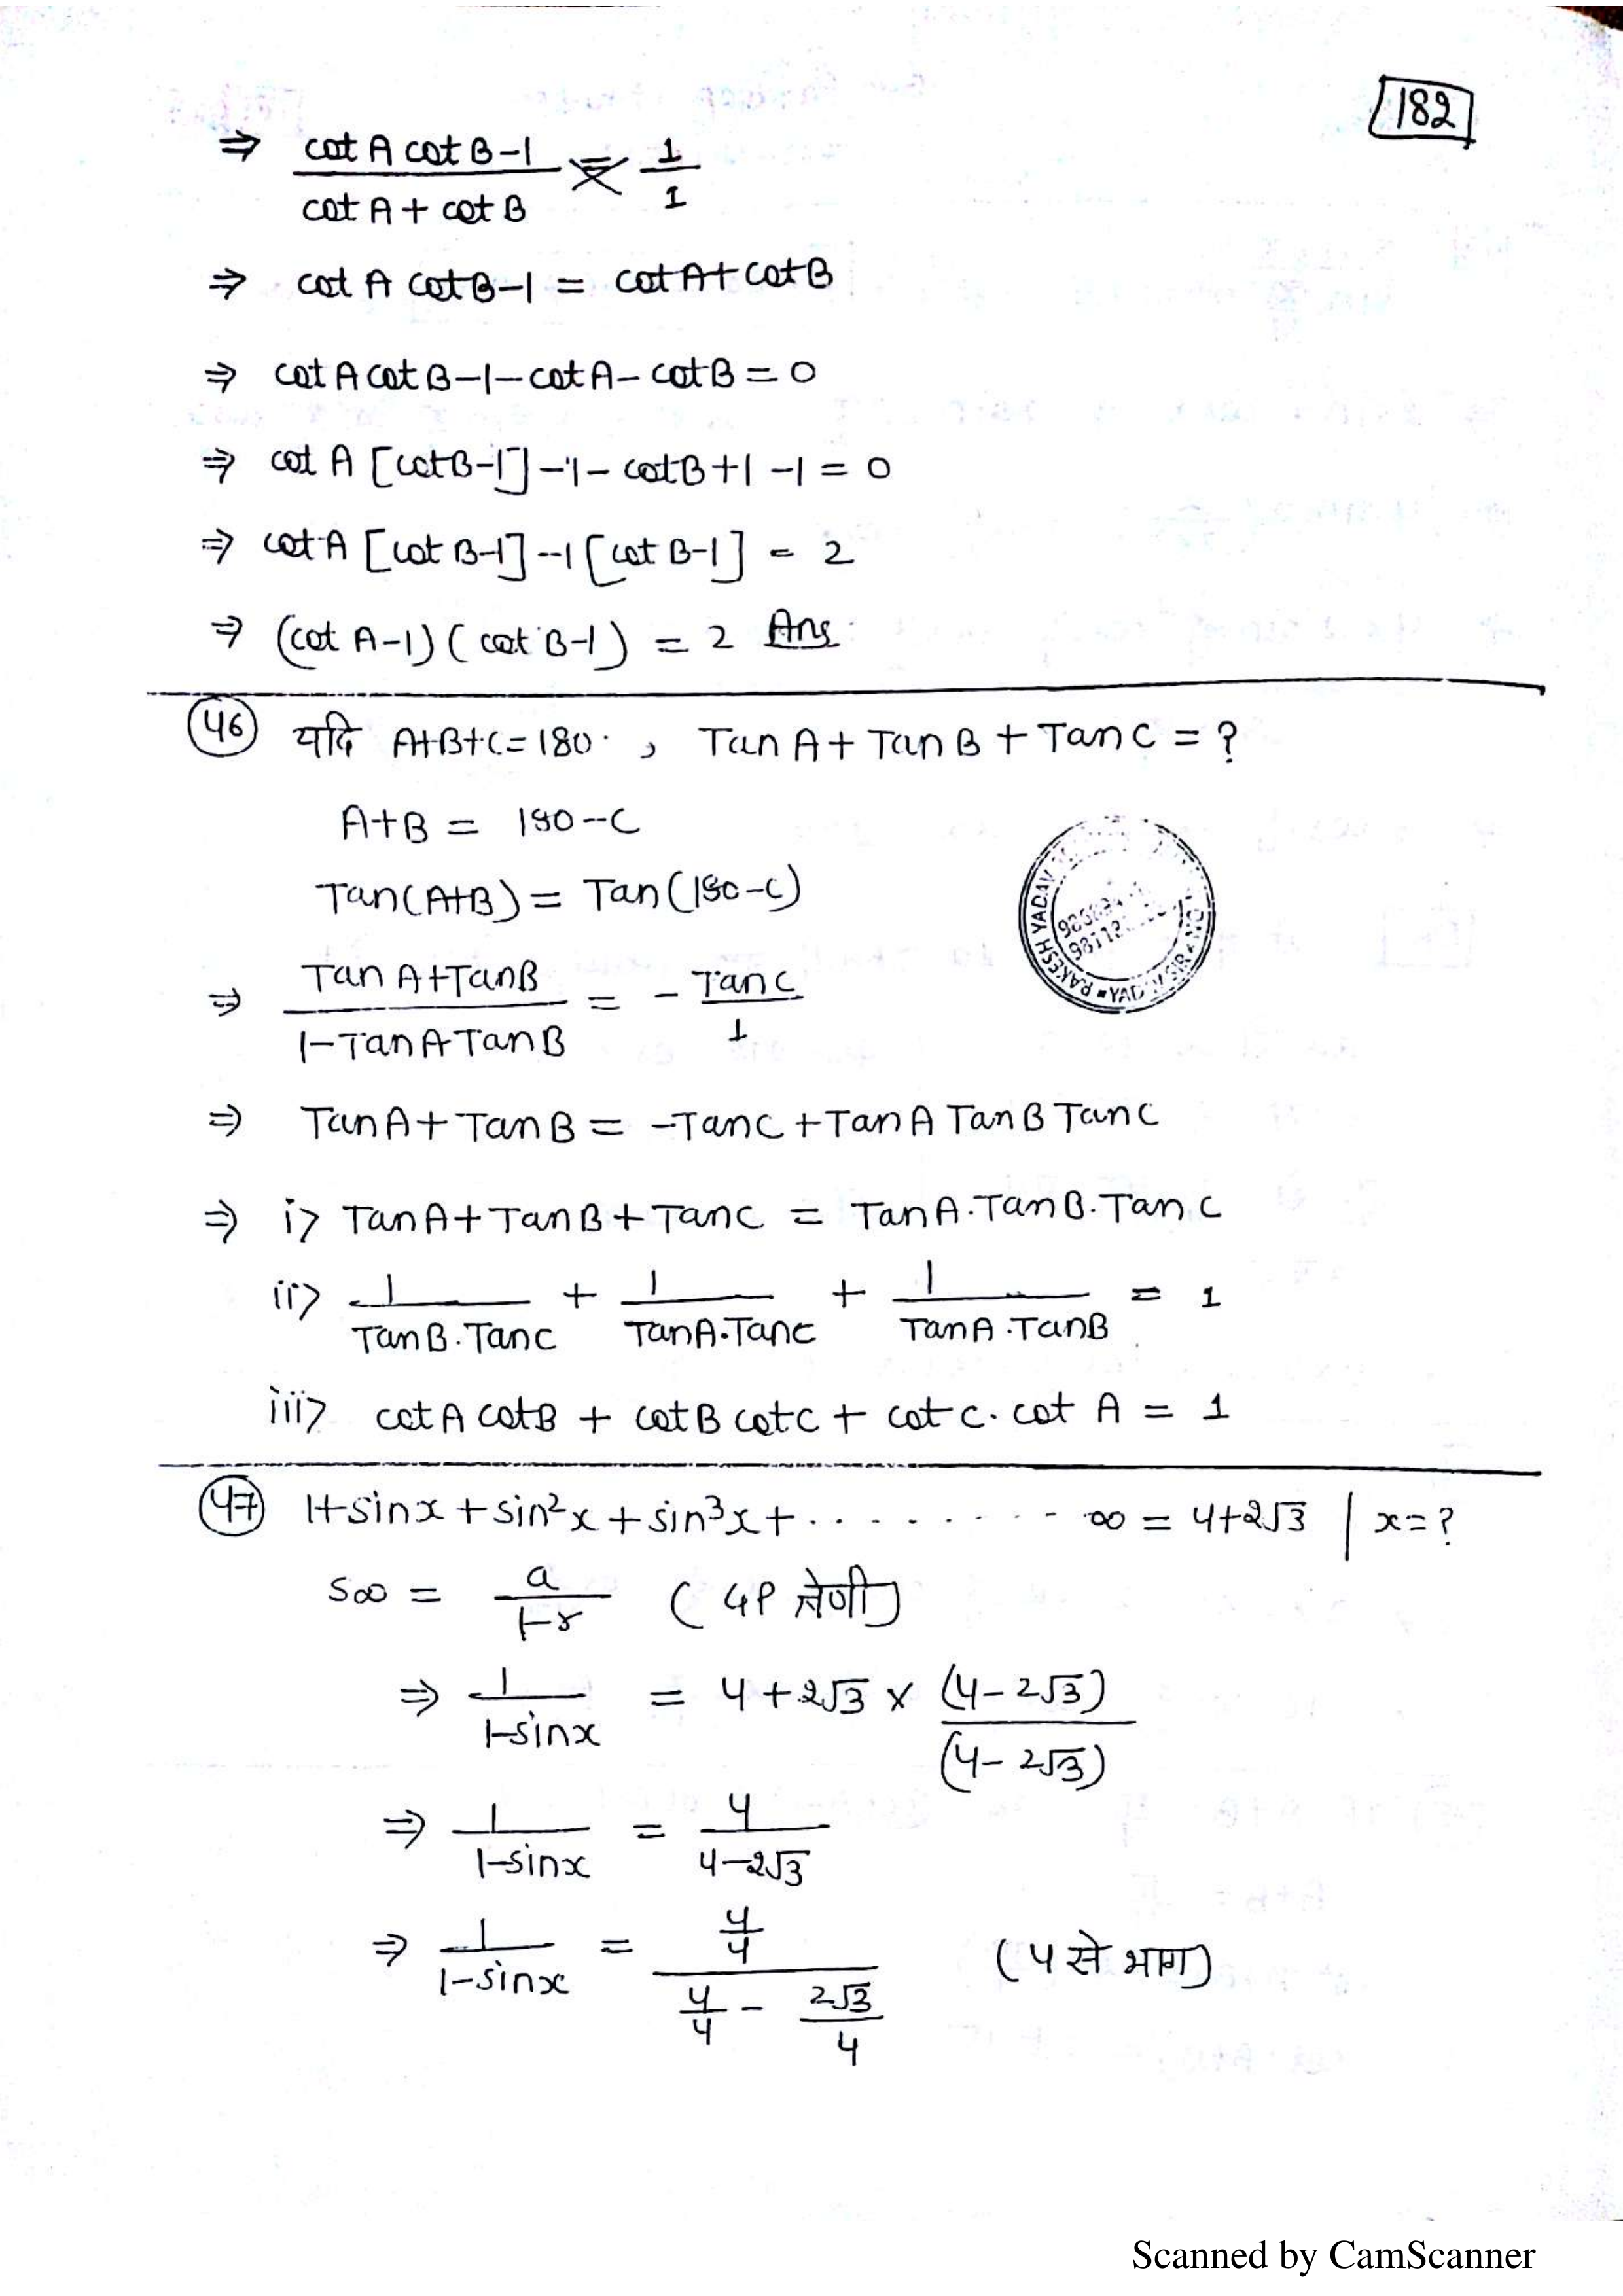 182
⇒ cot A cot B-1 / cot A + cot B = 1/1
⇒ cot A cot B-1 = cot A + cot B
⇒ cot A cot B-1-cot A-cot B = 0
⇒ cot A [cot B-1] -1- cot B +1 -1 = 0
⇒ cot A [cot B-1] -1 [cot B-1] = 2
⇒ (cot A-1) (cot B-1) = 2 Ans.
46 यदि A+B+C=180°, Tan A + Tan B + Tan C = ?
A+B = 180-C
Tan(A+B) = Tan(180-C)
⇒ Tan A+Tan B / 1-Tan A Tan B = - Tan C / 1
⇒ Tan A + Tan B = -Tan C + Tan A Tan B Tan C
⇒ i> Tan A + Tan B + Tan C = Tan A. Tan B. Tan C
ii> 1 / Tan B. Tan C + 1 / Tan A. Tan C + 1 / Tan A. Tan B = 1
iii> cot A cot B + cot B cot C + cot C. cot A = 1
47 1+sinx + sin²x + sin³x + ......... ∞ = 4+2√3 | x=?
S∞ = a / 1-r (GP श्रेणी)
⇒ 1 / 1-sinx = 4+2√3 × (4-2√3) / (4-2√3)
⇒ 1 / 1-sinx = 4 / 4-2√3
⇒ 1 / 1-sinx = 4/4 / 4/4 - 2√3/4 (4 से भाग)
RAKESH YADAV
Scanned by CamScanner